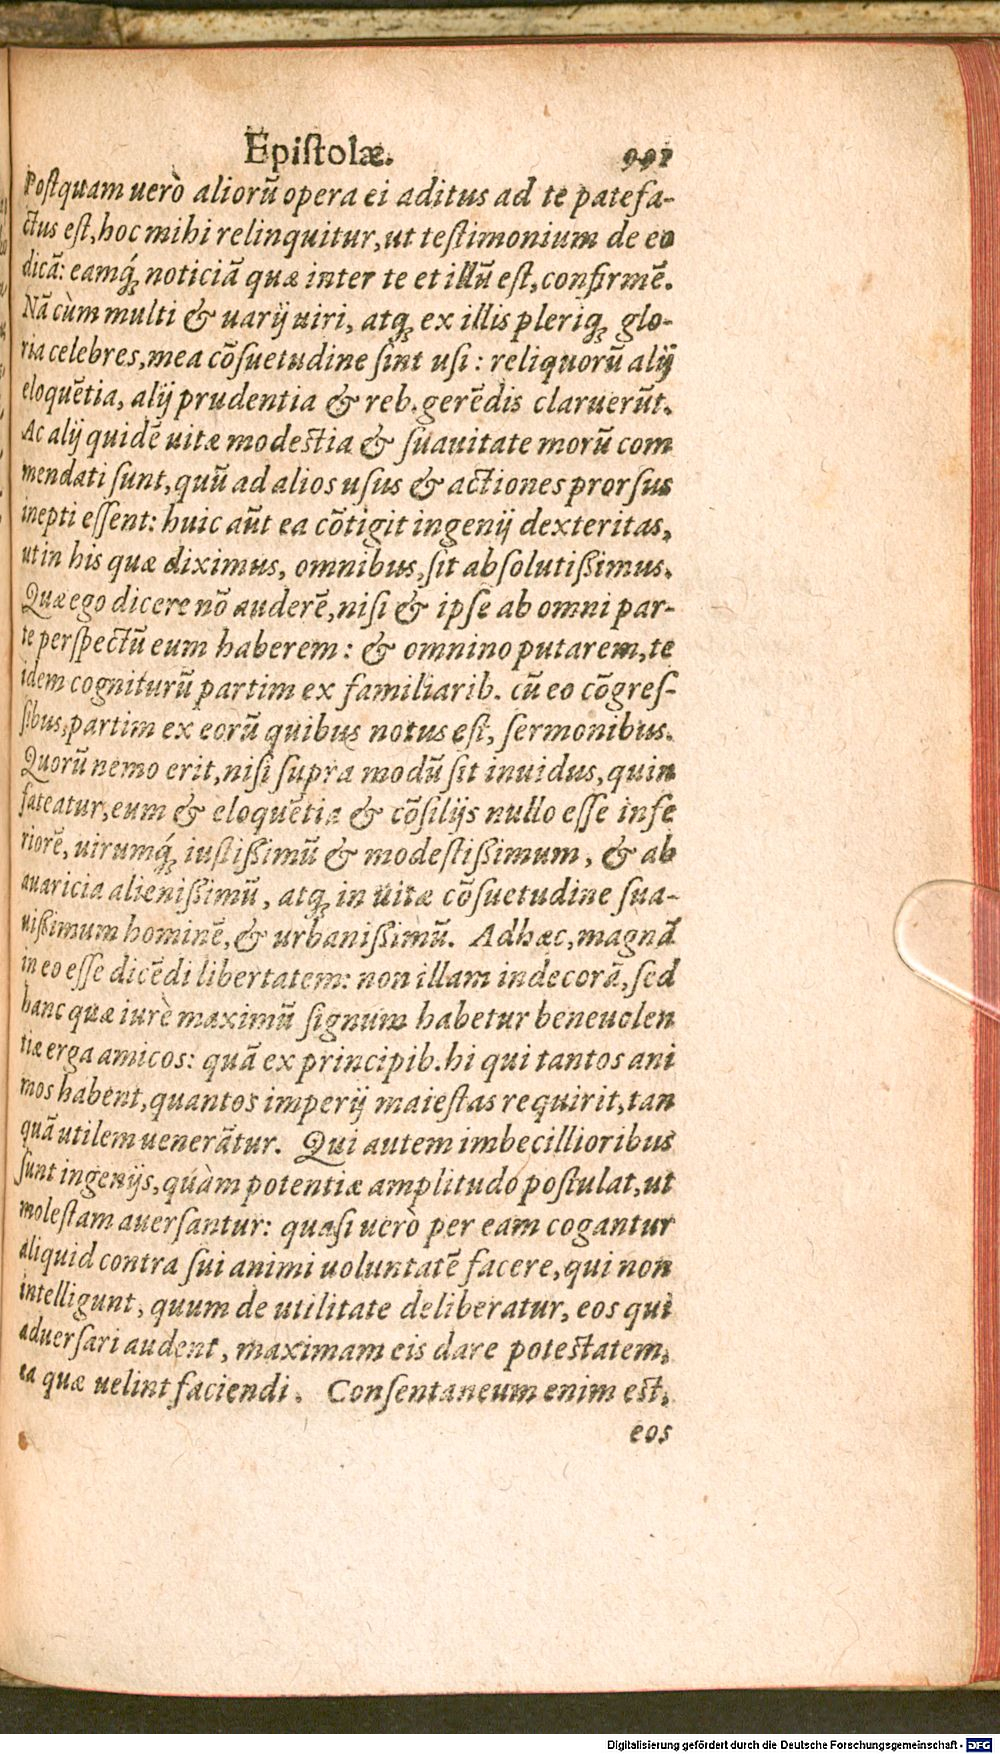 Epiſtolæ. 991
Poſtquam uerò aliorũ opera ei aditus ad te patefa-
ctus eſt, hoc mihi relinquitur, ut teſtimonium de eo
dicã: eamq́ꝫ noticiã quæ inter te et illũ eſt, confirmẽ.
Nã cùm multi & uarij uiri, atqꝫ ex illis pleriqꝫ glo-
ria celebres, mea cõſuetudine ſint uſi: reliquorũ alij
eloquẽtia, alij prudentia & reb. gerẽdis claruerũt.
Ac alij quidẽ uitæ modeſtia & ſuauitate morũ com
mendati ſunt, quũ ad alios uſus & actiones prorſus
inepti eſſent: huic aũt ea cõtigit ingenij dexteritas,
ut in his quæ diximus, omnibus, ſit abſolutiſſimus.
Quæ ego dicere nõ auderẽ, niſi & ipſe ab omni par-
te perſpectũ eum haberem: & omnino putarem, te
idem cogniturũ partim ex familiarib. cũ eo cõgreſ-
ſibus, partim ex eorũ quibus notus eſt, ſermonibus.
Quorũ nemo erit, niſi ſupra modũ ſit inuidus, quin
fateatur, eum & eloquẽtia & cõſilijs nullo eſſe infe
riorẽ, uirumq́ꝫ iuſtiſſimũ & modeſtiſſimum, & ab
auaricia alieniſſimũ, atqꝫ in uitæ cõſuetudine ſua-
uiſſimum hominẽ, & urbaniſſimũ. Adhæc, magnã
in eo eſſe dicẽdi libertatem: non illam indecorã, ſed
hanc quæ iurè maximũ ſignum habetur beneuolen
tiæ erga amicos: quã ex principib. hi qui tantos ani
mos habent, quantos imperij maieſtas requirit, tan
quã utilem uenerãtur. Qui autem imbecillioribus
ſunt ingenijs, quàm potentiæ amplitudo poſtulat, ut
moleſtam auerſantur: quaſi uerò per eam cogantur
aliquid contra ſui animi uoluntatẽ facere, qui non
intelligunt, quum de utilitate deliberatur, eos qui
aduerſari audent, maximam eis dare poteſtatem,
ea quæ uelint faciendi. Conſentaneum enim eſt,
eos
Digitalisierung gefördert durch die Deutsche Forschungsgemeinschaft - DFG